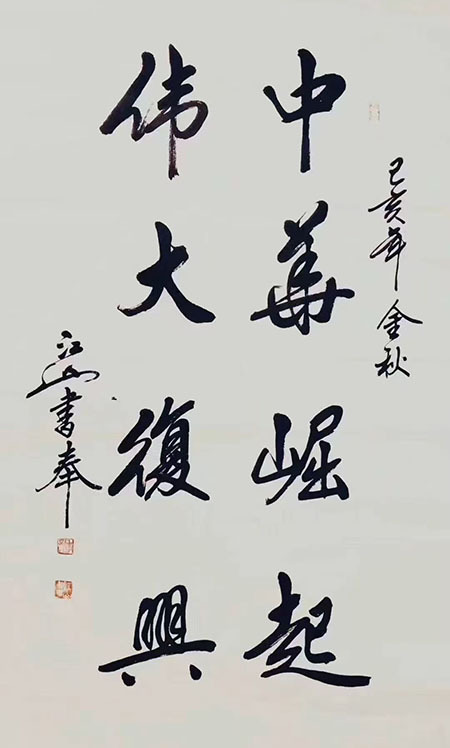 己亥年金秋
中華崛起
伟大復興
江山書奉